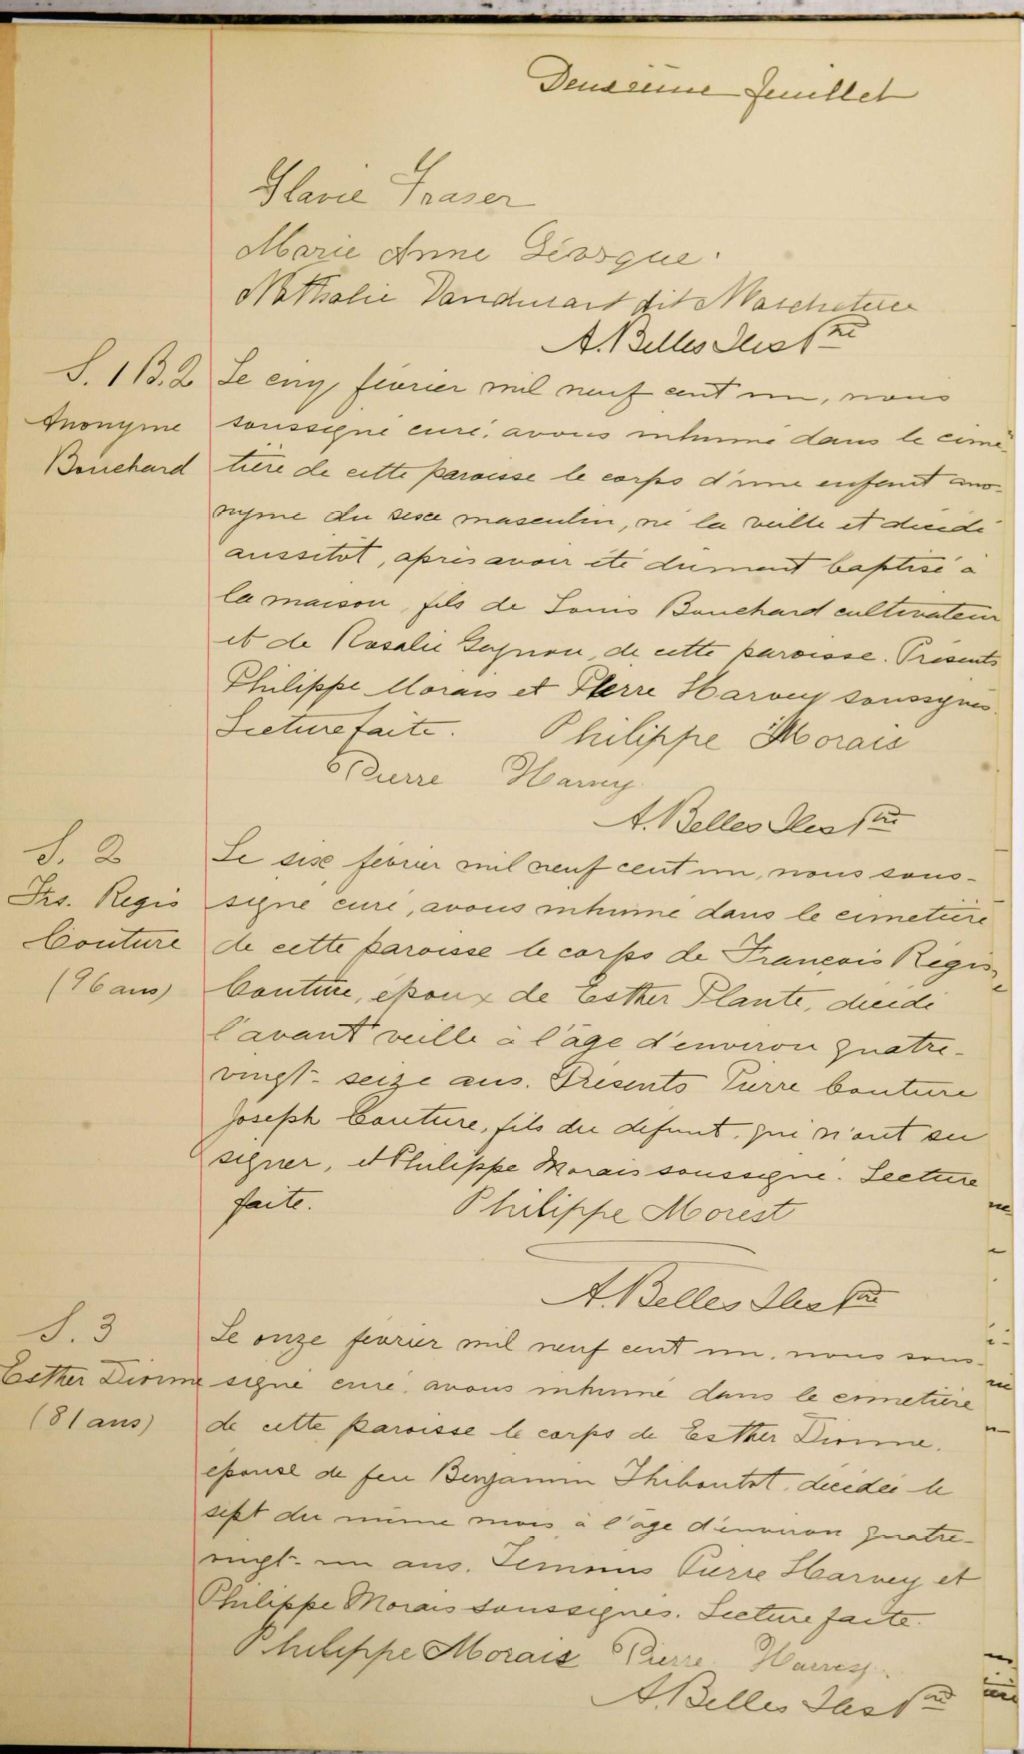 Deuxième feuillet
Flavie Fraser
Marie Anne
Nathalie dit
A. Belles Isles Ptre
S. 1 B. 2
Anonyme
Bouchard
Le cinq février mil neuf cent un, nous
soussigné curé, avons inhumé dans le cime-
tière de cette paroisse le corps d'une enfant ano-
nyme du sexe masculin, né la veille et décédé
aussitôt, après avoir été dûment baptisé à
la maison, fils de Louis Bouchard cultivateur
et de Rosalie Gagnon, de cette paroisse. Présents
Philippe Morais et Pierre Harvey soussignés.
Lecture faite. Philippe Morais
Pierre Harvey
A. Belles Isles Ptre
S. 2
Frs. Regis
Couture
(96 ans)
Le six février mil neuf cent un, nous sous-
signé curé, avons inhumé dans le cimetière
de cette paroisse le corps de François Régis
Couture, époux de Esther Plante, décédé
l'avant veille à l'âge d'environ quatre-
vingt-seize ans. Présents Pierre Couture
Joseph Couture, fils du défunt, qui n'ont su
signer, et Philippe Morais soussigné. Lecture
faite. Philippe Morest
A. Belles Isles Ptre
S. 3
Esther Dionne
(81 ans)
Le onze février mil neuf cent un, nous sous-
signé curé, avons inhumé dans le cimetière
de cette paroisse le corps de Esther Dionne,
épouse de feu Benjamin Thiboutot, décédée le
sept du même mois à l'âge d'environ quatre-
vingt-un ans. Témoins Pierre Harvey et
Philippe Morais soussignés. Lecture faite.
Philippe Morais Pierre Harvey
A. Belles Isles Ptre